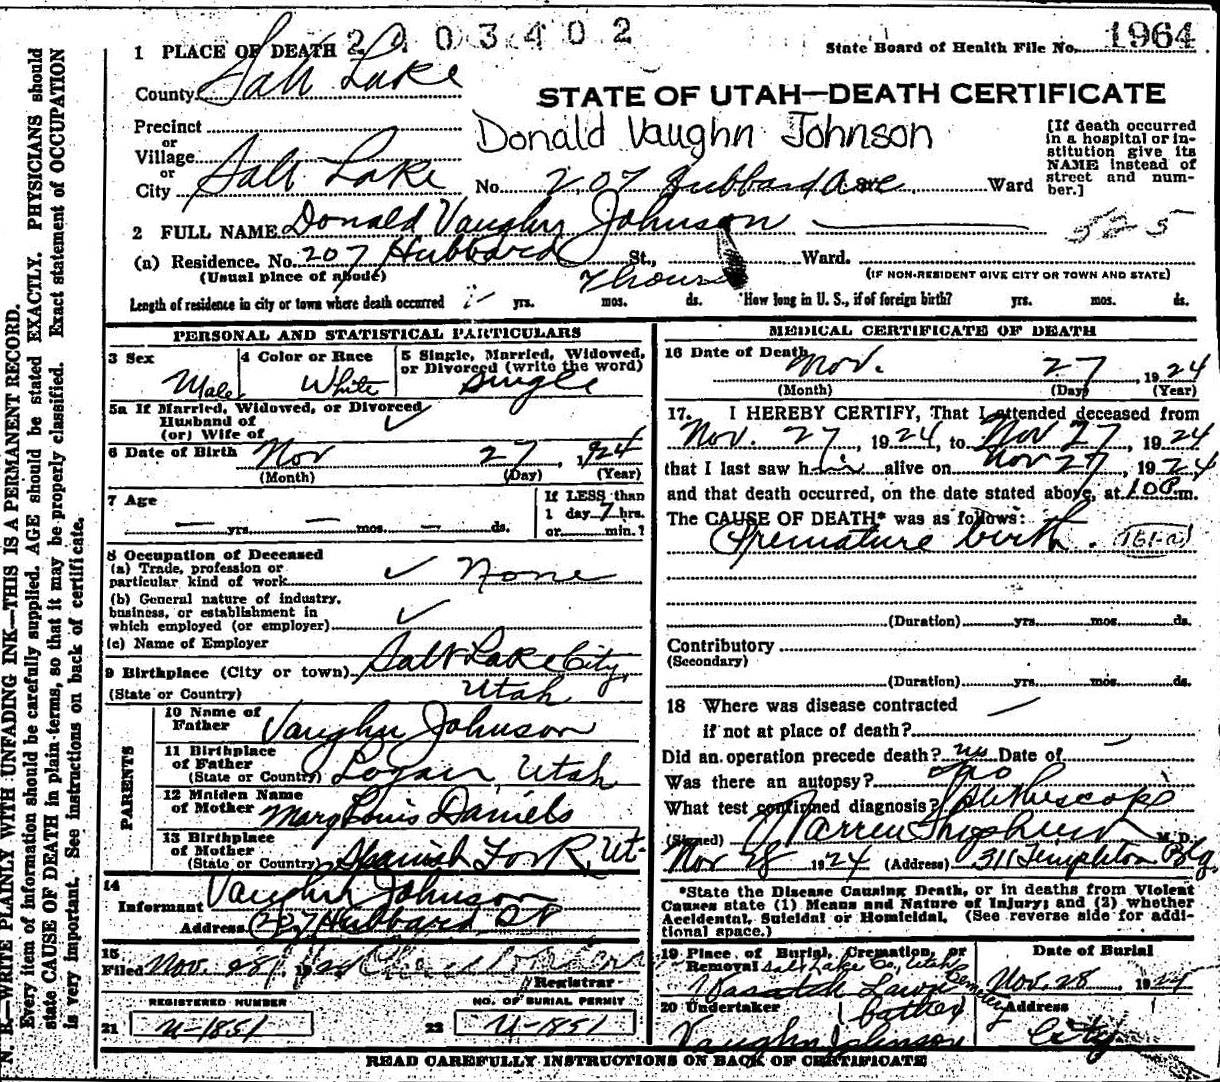 2403402
1 PLACE OF DEATH
State Board of Health File No. 1964
County Salt Lake
STATE OF UTAH—DEATH CERTIFICATE
Precinct
Donald Vaughn Johnson
[If death occurred in a hospital or institution give its NAME instead of street and number.]
or
Village
or
City Salt Lake No. 207 Hubbard Ave. Ward
2 FULL NAME Donald Vaughn Johnson
525
(a) Residence. No. 207 Hubbard St., Ward.
(Usual place of abode) (IF NON-RESIDENT GIVE CITY OR TOWN AND STATE)
7 hours
Length of residence in city or town where death occurred yrs. mos. ds. How long in U. S., if of foreign birth? yrs. mos. ds.
PERSONAL AND STATISTICAL PARTICULARS
3 Sex Male
4 Color or Race White
5 Single, Married, Widowed, or Divorced (write the word) Single
5a If Married, Widowed, or Divorced
Husband of
(or) Wife of
6 Date of Birth Nov 27, 1924
(Month) (Day) (Year)
7 Age
yrs. mos. ds.
If LESS than
1 day 7 hrs.
or min.?
8 Occupation of Deceased
(a) Trade, profession or
particular kind of work None
(b) General nature of industry,
business, or establishment in
which employed (or employer)
(c) Name of Employer
9 Birthplace (City or town) Salt Lake City,
(State or Country) Utah
PARENTS
10 Name of
Father Vaughn Johnson
11 Birthplace
of Father
(State or Country) Logan, Utah
12 Maiden Name
of Mother Mary Louis Daniels
13 Birthplace
of Mother
(State or Country) Spanish Fork, Ut-
14
Informant Vaughn Johnson
Address 207 Hubbard
15
Filed Nov. 28, 1924
Registrar
REGISTERED NUMBER
NO. OF BURIAL PERMIT
21 U-1851
22 U-1851
MEDICAL CERTIFICATE OF DEATH
16 Date of Death Nov. 27, 1924
(Month) (Day) (Year)
17. I HEREBY CERTIFY, That I attended deceased from
Nov. 27, 1924, to Nov 27, 1924
that I last saw him alive on Nov 27, 1924
and that death occurred, on the date stated above, at 100 P.m.
The CAUSE OF DEATH* was as follows:
Premature birth. 161-a
(Duration) yrs. mos. ds.
Contributory
(Secondary)
(Duration) yrs. mos. ds.
18 Where was disease contracted
if not at place of death?
Did an operation precede death? no Date of
Was there an autopsy? no
What test confirmed diagnosis?
(Signed) Warren M. D.
Nov 28 1924 (Address) 311 Templeton Bldg.
*State the Disease Causing Death, or in deaths from Violent
Causes state (1) Means and Nature of Injury; and (2) whether
Accidental, Suicidal or Homicidal. (See reverse side for addi-
tional space.)
19 Place of Burial, Cremation, or
Removal Salt Lake Co., Utah
Wasatch Lawn Cemetery
Date of Burial
Nov. 28 1924
20 Undertaker (father)
Vaughn Johnson
Address
City
READ CAREFULLY INSTRUCTIONS ON BACK OF CERTIFICATE
N. B.—WRITE PLAINLY WITH UNFADING INK—THIS IS A PERMANENT RECORD.
Every item of information should be carefully supplied. AGE should be stated EXACTLY. PHYSICIANS should
state CAUSE OF DEATH in plain terms, so that it may be properly classified. Exact statement of OCCUPATION
is very important. See instructions on back of certificate.